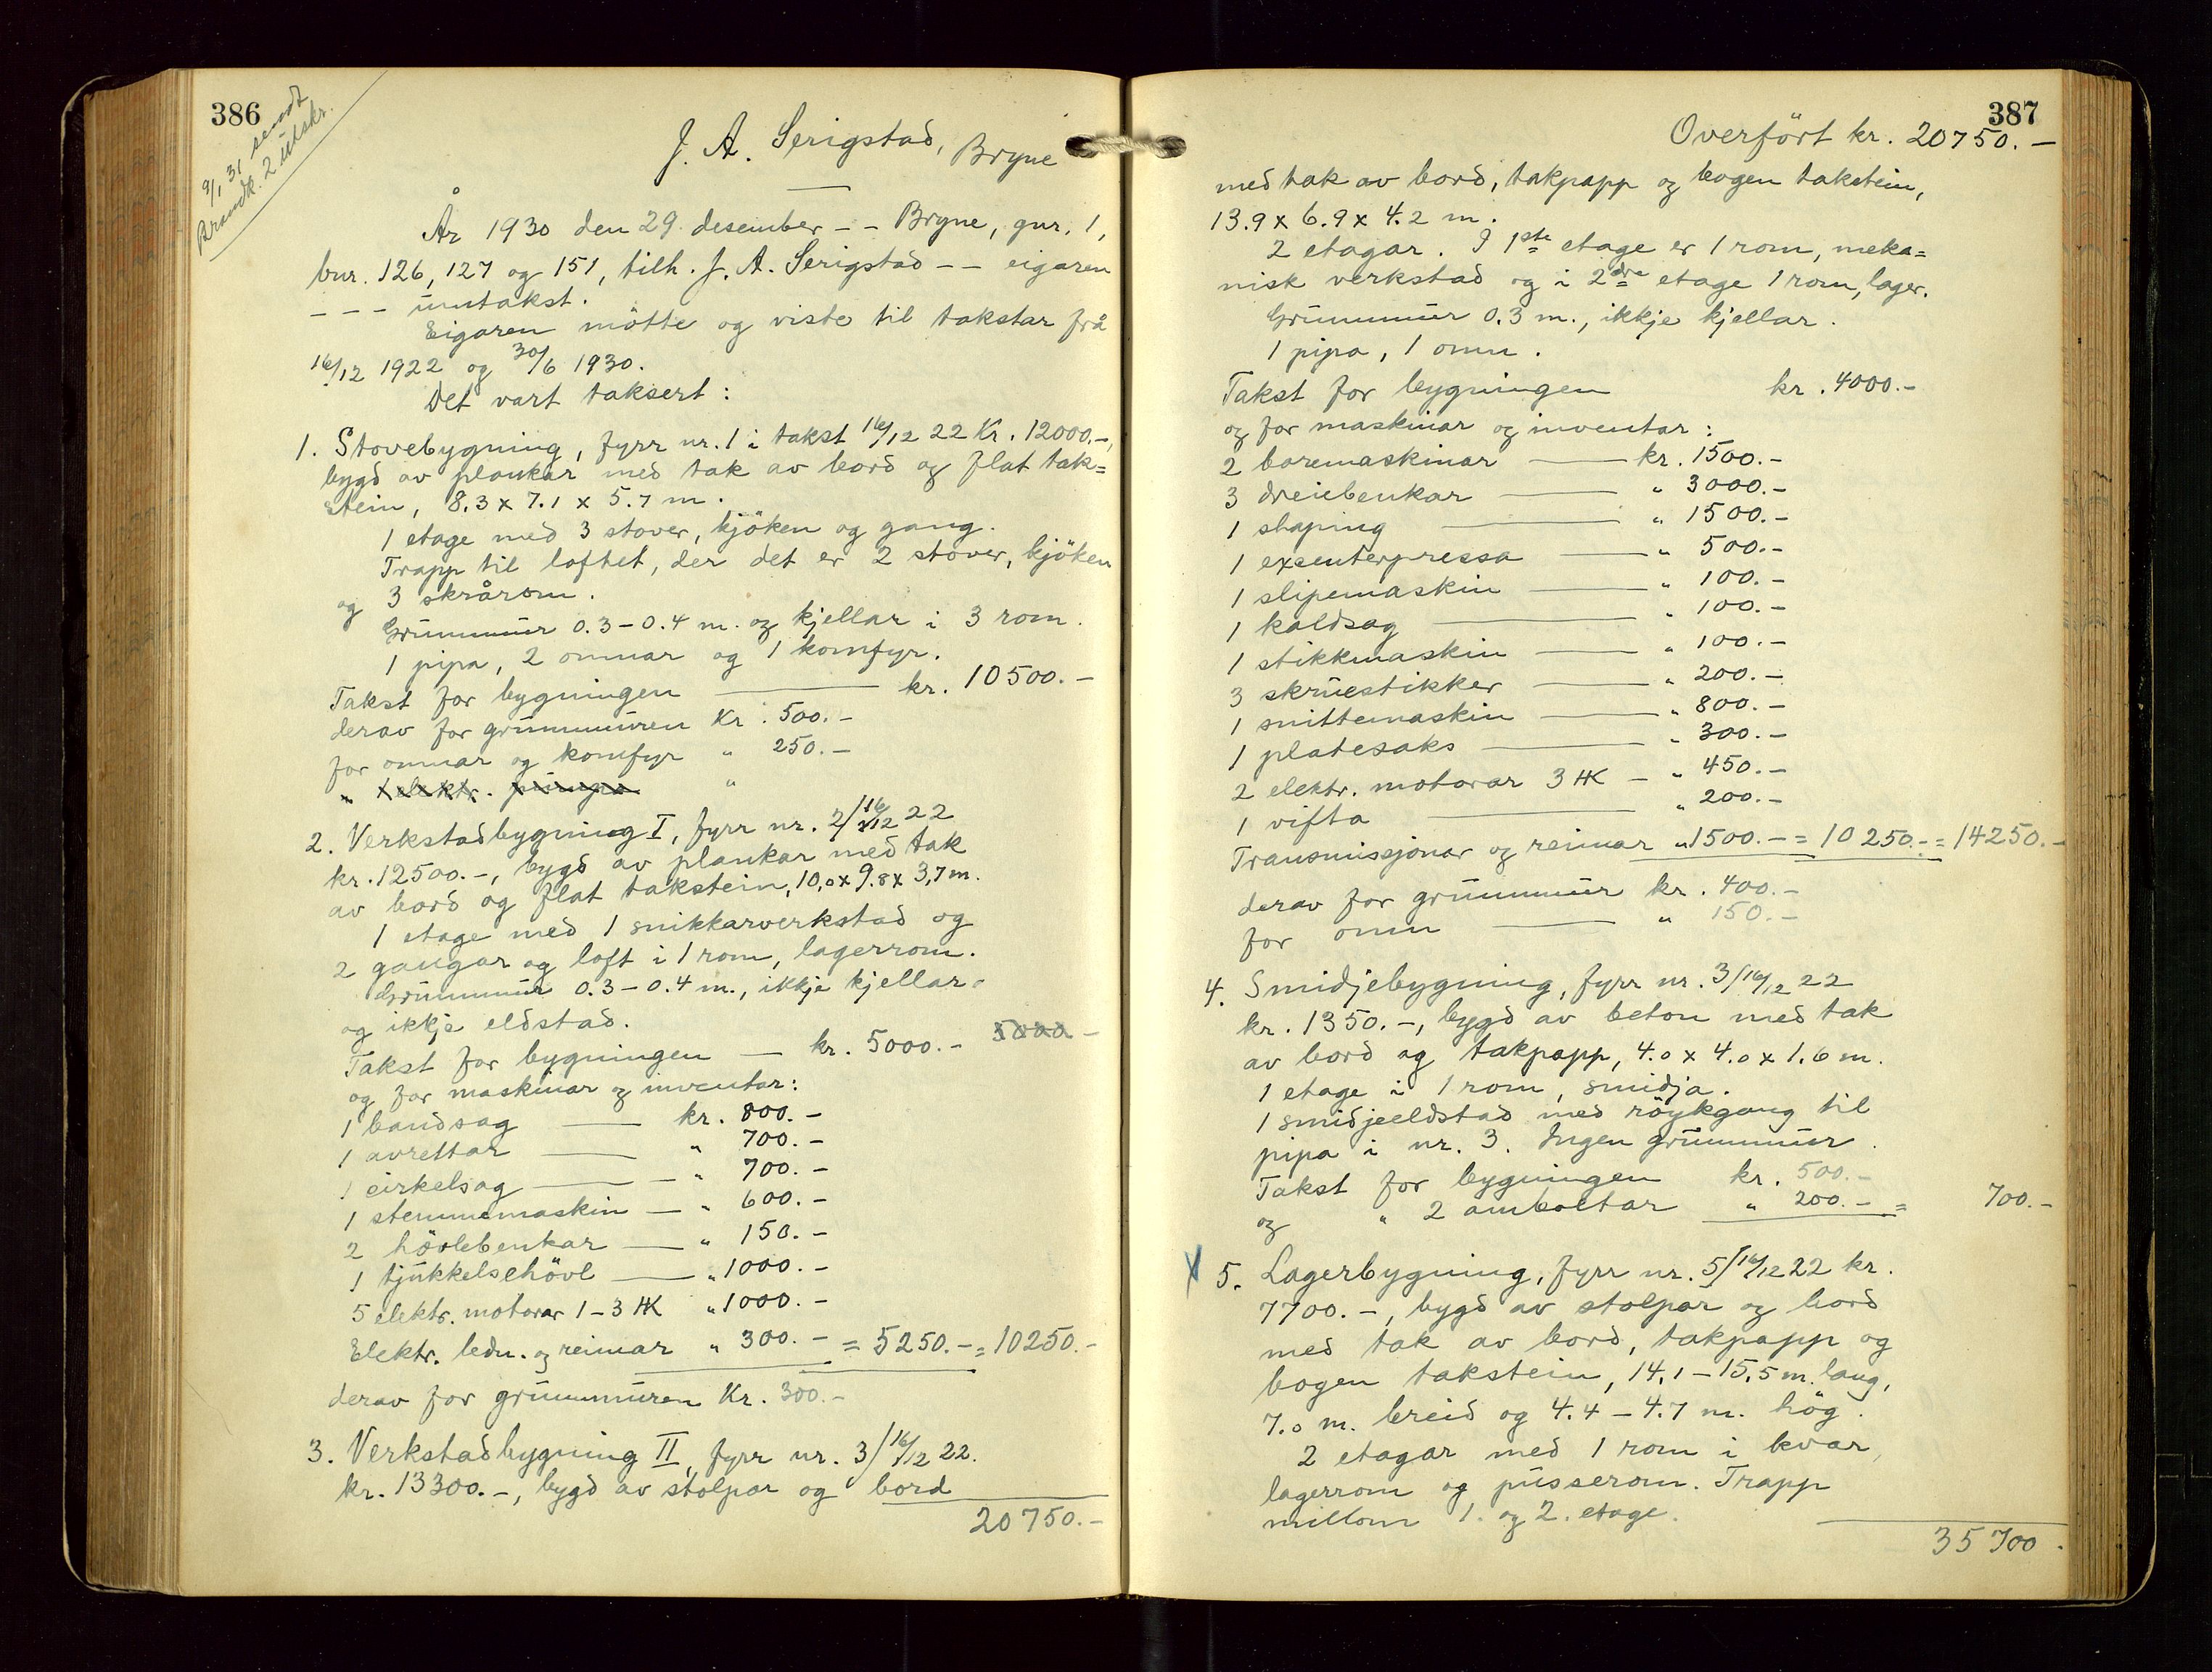 386
9/1 31 sendt
Brandk. 2 utskr.
J. A. Serigstad, Bryne
År 1930 den 29. desember - - Bryne, gnr. 1,
bnr. 126, 127 og 151, tilh. J. A. Serigstad - - eigaren
- - - umtakst.
Eigaren møtte og viste til takstar frå
16/12 1922 og 30/6 1930.
Det vart taksert:
1. Stovebygning, fyrr nr. 1 i takst 16/12 22 Kr. 12000.-,
bygd av plankar med tak av bord og flat tak=
stein, 8.3 x 7.1 x 5.7 m.
1 etage med 3 stover, kjöken og gang.
Trapp til loftet, der det er 2 stover, kjöken
og 3 skrårom.
Grunnmur 0.3-0.4 m. og kjellar i 3 rom.
1 pipa, 2 omnar og 1 komfyr.
Takst for bygningen — kr. 10500.-
derav for grunnmuren Kr. 500.-
for omnar og komfyr " 250.-
" elektr. "
2. Verkstadbygning I, fyrr nr. 2/16/12 22
kr. 12500.-, bygd av plankar med tak
av bord og flat takstein, 10,0 x 9.8 x 3,7 m.
1 etage med 1 snikkarverkstad og
2 gangar og loft i 1 rom, lagerrom.
Grunnmur 0.3-0.4 m., ikkje kjellar
og ikkje eldstad.
Takst for bygningen — kr. 5000.- 5000 -
og for maskinar og inventar:
1 bandsag — kr. 800.-
1 avrettar — " 700.-
1 cirkelsag — " 700.-
1 stemmemaskin — " 600.-
2 hövlebenkar — " 150.-
1 tjukkelsehövl — " 1000.-
5 elektr. motorar 1-3 HK " 1000.-
Elektr. ledn. og reimar " 300.- = 5250.- = 10250.-
derav for grunnmuren Kr. 300.-
3. Verkstadbygning II, fyrr nr. 3/16/12 22.
kr. 13300.-, bygd av stolpar og bord
20750.-
387
Overfört kr. 20750.-
med tak av bord, takpapp og bogen takstein,
13.9 x 6.9 x 4.2 m.
2 etagar. I 1ste etage er 1 rom, meka=
nisk verkstad og i 2dre etage 1 rom, lager.
Grunnmur 0.3 m., ikkje kjellar.
1 pipa, 1 omn.
Takst for bygningen kr. 4000.-
og for maskinar og inventar:
2 boremaskinar — kr. 1500.-
3 dreiebenkar — " 3000.-
1 shaping — " 1500.-
1 exsenterpressa — " 500.-
1 slipemaskin — " 100.-
1 kaldsag — " 100.-
1 stikkmaskin — " 100.-
3 skruestikker — " 200.-
1 snittemaskin — " 800.-
1 platesaks — " 300.-
2 elektr. motorar 3 HK - " 450.-
1 vifta — " 200.-
Transmissjonar og reimar " 1500.- = 10250.- = 14250.-
derav for grunnmur kr. 400.-
for omn — " 150.-
4. Smidjebygning, fyrr nr. 3/16/12 22
kr. 1350.-, bygd av beton med tak
av bord og takpapp, 4.0 x 4.0 x 1.6 m.
1 etage i 1 rom, smidja.
1 smidjeeldstad med röykgang til
pipa i nr. 3. Ingen grunnmur.
Takst for bygningen kr. 500.-
og " 2 amboltar " 200.- = 700.-
X 5. Lagerbygning, fyrr nr. 5/16/12 22 kr.
7700.-, bygd av stolpar og bord
med tak av bord, takpapp og
bogen takstein, 14,1-15,5 m. lang,
7.0 m. breid og 4.4-4.7 m. hög.
2 etagar med 1 rom i kvar,
lagerrom og pusserom. Trapp
millom 1. og 2. etage.
35700.